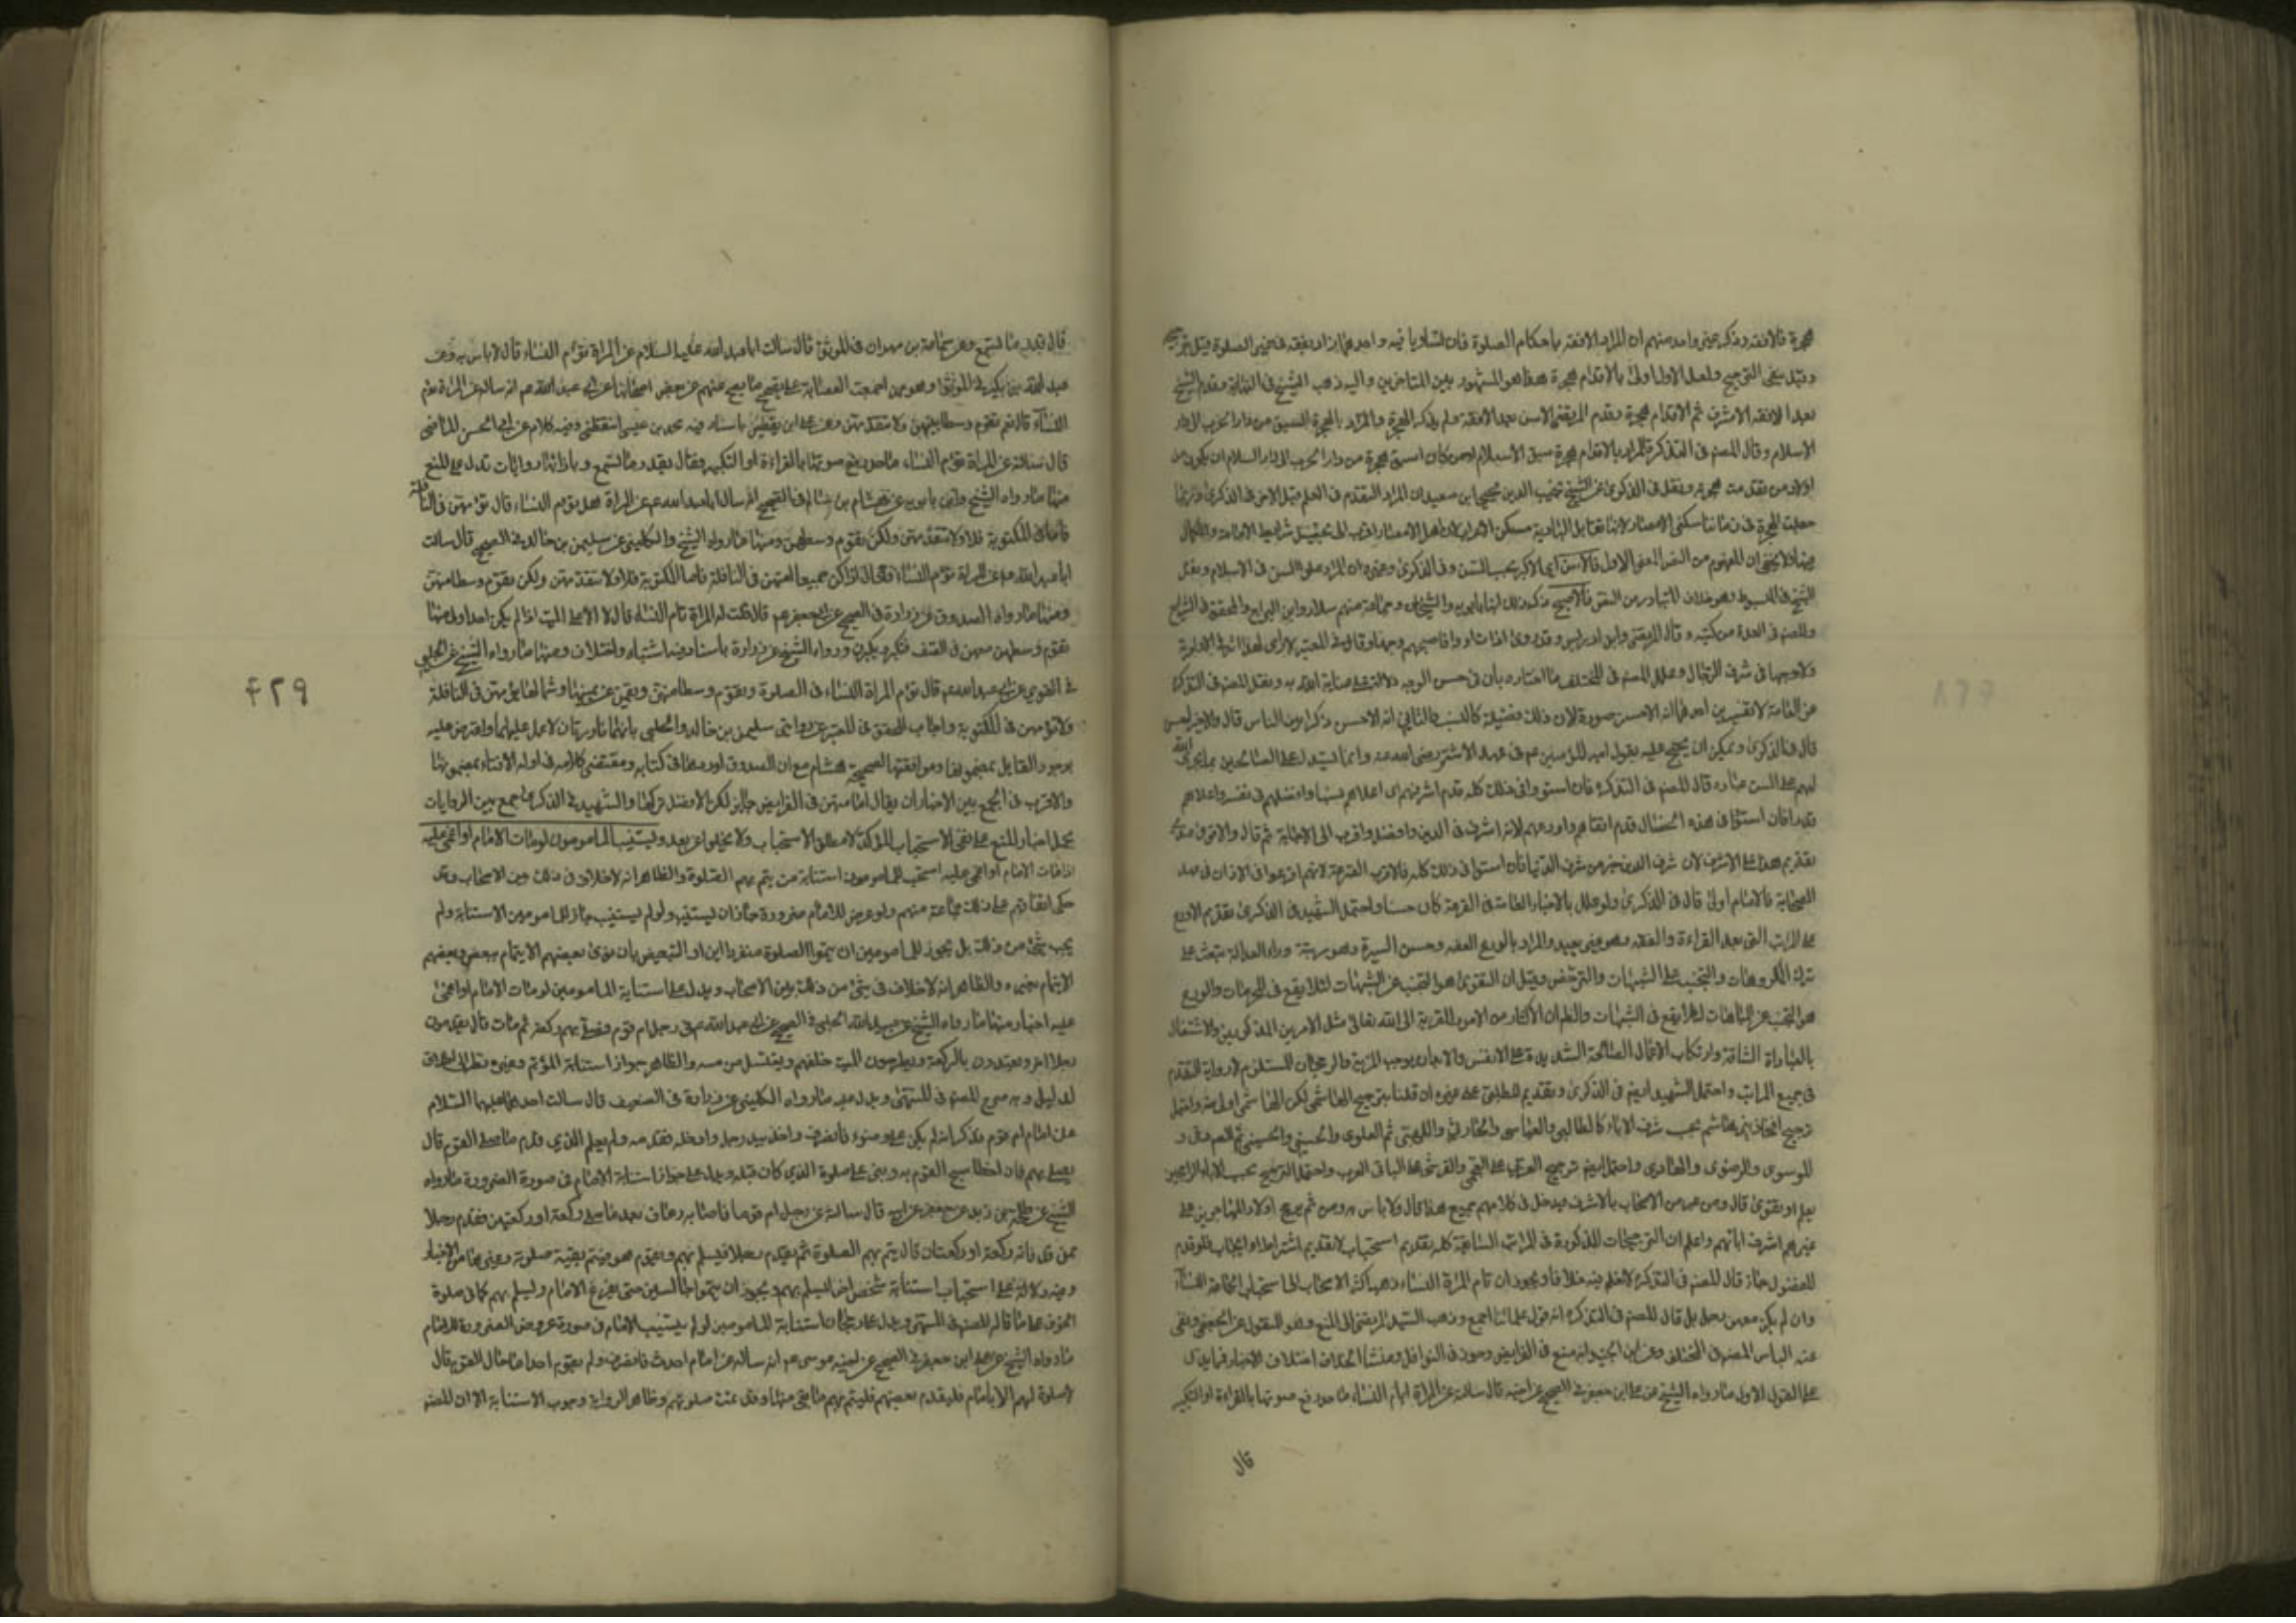 هجرة فالافقه وذكر غير واحد منهم ان المراد الافقه باحكام الصلوة فان تساويا فيه واحدهما ازيد بفقه في غير الصلوة قيل يرجح
وقيل بنفي الترجيح ولعل الاول اولى بالاقدام هجرة هذا هو المشهور بين المتاخرين واليه ذهب الشيخ في النهاية وقدم الشيخ
بعد الافقه الاشرف ثم الاقدام هجرة وقدم المرتضى الاسن بعد الافقه ولم يذكر الهجرة والمراد بالهجرة السبق من دار الحرب الى دار
الاسلام وقال المصنف في التذكرة المراد بالاقدام هجرة سبق الاسلام او من كان اسبق هجرة من دار الحرب الى دار السلام ان يكون من
اولاد من تقدمت هجرته ونقل في الذكرى عن الشيخ نجيب الدين يحيى ابن سعيد ان المراد التقدم في العلم قبل الاخر في الذكرى وربما
جعلت الهجرة في زماننا سكنى الامصار لانها تقابل البادية مسكن الاعراب لان اهل الامصار اقرب الى تحصيل شرايط الامامة والكمال
فيها ولا يخفى ان المفهوم من النص المعنى الاول فالاسن اي الاكبر بحسب السن وفي الذكرى وغيره ان المراد علو السن في الاسلام ونقل
الشيخ في المبسوط وهو خلاف المتبادر من النص فالاصبح ذكر ذلك ابنا بابويه والشيخان وجماعة منهم سلار وابن البراج والمحقق في الشرايع
والمصنف في العدة من كتبه وقال المرتضى وابن ادريس وقد روي اذا تساووا فاصبحهم وجها وقال في المعتبر لا ارى لهذا اثرا في الاولوية
ولا وجها في شرف الرجال وعلل المصنف في المختلف ما اختاره بان في حسن الوجه دلالة على عناية الله به ونقل المصنف في التذكرة
عن العامة لا تفسيرين احدهما انه الاحسن صورة لان ذلك فضيلة كالنسب والثاني انه الاحسن ذكرا بين الناس قال والاخير احسن
قال في الذكرى ويمكن ان يحتج عليه بقول امير المؤمنين عم في عهد الاشتر رضي الله عنه وانما يستدل على الصالحين بما يجري الله
لهم على السن عباده قال المصنف في التذكرة فان استووا في ذلك كله قدم اشرفهم اي اعلاهم نسبا وافضلهم في نفسه واعلاهم
قدرا فان استووا في هذه الخصال قدم اتقاهم واورعهم لانه اشرف في الدين وافضل واقرب الى الاجابة ثم قال والاقوى عندي
تقديم هذا على الاشرف لان شرف الدين خير من شرف الدنيا فان استووا في ذلك كله فالاقرب القرعة لانهم اقترعوا في الاذان في عهد
الصحابة فالامام اولى قال في الذكرى ولو علل بالاخبار العامة في القرعة كان حسنا واحتمل الشهيد في الذكرى تقديم الاورع
على المراتب التي بعد القراءة والفقه وهو غير بعيد والمراد بالورع العفة وحسن السيرة وهو مرتبة وراء العدالة تبعث على
ترك المكروهات والتجنب عن الشبهات والترخص وقيل ان التقوى هو التجنب عن الشبهات لئلا يقع في المحرمات والورع
هو التجنب عن المباحات لئلا يقع في الشبهات والظاهر ان الاكثار من الامور المقربة الى الله تعالى مثل الامرين المذكورين والاشتغال
بالعبادات الشاقة وارتكاب الاعمال الصالحة الشديدة على الانفس والابدان يوجب المزية والرجحان المستلزم لاولوية التقدم
في جميع المراتب واحتمل الشهيد ايضا في الذكرى وتقديم المطلبي على غيره ان قلنا بترجيح الهاشمي لكن الهاشمي اولى منه واحتمل
ترجيح افخاذ بني هاشم بحسب شرف الاباء كالطالبي والعباسي والحارثي واللهبي ثم العلوي والحسني والحسيني ثم الصادقي و
الموسوي والرضوي والهادي واحتمل ايضا ترجيح العربي على العجمي والقرشي على الباقي العرب واحتمل الترجيح بحسب الاباء الراجحين
بعلم او تقوى قال ومن عبر من الاصحاب بالاشرف يدخل في كلامهم جميع هذا قال ولا باس به ومن ثم يرجح اولاد المهاجرين على
غيرهم لشرف ابائهم واعلم ان الترجيحات المذكورة في المراتب السابقة كله تقديم استحباب لا تقديم اشتراط او ايجاب فلو قدم
المفضول جاز قال المصنف في التذكرة لا نعلم فيه خلافا ويجوز ان تام المراة النساء ذهب اكثر الاصحاب الى استحباب الجماعة للنساء
وان لم يكن معهن رجل بل قال المصنف في التذكرة انه قول علمائنا اجمع وذهب السيد المرتضى الى المنع وهو المنقول عن الجعفي ونفى
عنه الباس المصنف في المختلف وعن ابن الجنيد انه منع في الفرايض وجوز في النوافل ومنشا الخلاف اختلاف الاخبار فمما يدل
على القول الاول ما رواه الشيخ عن علي ابن جعفر في الصحيح عن اخيه قال سالته عن المراة تؤم النساء ما حد رفع صوتها بالقراءة او التكبير
قال
قال بقدر ما تسمع وعن سماعة بن مهران في الموثق قال سالت ابا عبد الله عليه السلام عن المراة تؤم النساء قال لا باس به وعن
عبد الله بن بكير في الموثق وهو ممن اجمعت العصابة على تصحيح ما يصح عنهم عن بعض اصحابنا عن ابي عبد الله عم انه ساله عن المراة تؤم
النساء قال نعم تقوم وسطا بينهن ولا تتقدمهن وعن علي ابن يقطين باسناد فيه محمد بن عيسى اليقطيني وفيه كلام عن ابي الحسن الماضي
قال سالته عن المراة تؤم النساء ما حد رفع صوتها بالقراءة او التكبير فقال بقدر ما تسمع وبازائها روايات تدل على المنع
منها ما رواه الشيخ وابن بابويه عن هشام بن سالم في الصحيح انه سال ابا عبد الله عم عن المراة هل تؤم النساء قال تؤمهن في النافلة
فاما في المكتوبة فلا ولا تتقدمهن ولكن تقوم وسطهن ومنها ما رواه الشيخ والكليني عن سليمن بن خالد في الصحيح قال سالت
ابا عبد الله عم عن المراة تؤم النساء فقال اذا كن جميعا امتهن في النافلة فاما المكتوبة فلا ولا تتقدمهن ولكن تقوم وسطا منهن
ومنها ما رواه الصدوق عن زرارة في الصحيح عن ابي جعفر عم قال قلت له المراة تام النساء قال لا الا على الميت اذا لم يكن احد اولى منها
تقوم وسطهن معهن في الصف فتكبر ويكبرن ورواه الشيخ عن زرارة باسناد فيه اشتباه واختلاف ومنها ما رواه الشيخ عن الحلبي
في القوي عن ابي عبد الله عم قال تؤم المراة النساء في الصلوة وتقوم وسطا منهن ويقمن عن يمينها وشمالها تؤمهن في النافلة
ولا تؤمهن في المكتوبة واجاب المحقق في المعتبر عن روايتي سليمن بن خالد والحلبي بانهما نادرتان لا عمل عليهما واعترض عليه
بوجود القايل بمضمونها وموافقتها لصحيحة هشام مع ان الصدوق اوردها في كتابه ومقتضى كلامه في اوله الافتاء بمضمونها
والاقرب في الجمع بين الاخبار ان يقال امامتهن في الفرايض جايز لكن الافضل تركها والشهيد في الذكرى جمع بين الروايات
بحمل اخبار المنع على نفي الاستحباب المؤكد لا مطلق الاستحباب ولا يخلو عن بعد ويستنيب المامومون لو مات الامام او اغمي عليه
اذا مات الامام او اغمي عليه استحب للمامومين استنابة من يتم بهم الصلوة والظاهر انه لا خلاف في ذلك بين الاصحاب وقد
حكى اتفاقهم على ذلك جماعة منهم ولو عرض للامام ضرورة جاز ان يستنيب ولو لم يستنيب جاز للمامومين الاستنابة ولم
يجب شئ من ذلك بل يجوز للمامومين ان يتموا الصلوة منفردين او التبعيض بان نوى بعضهم الايتمام ببعض وبعضهم
الايتمام بغيره والظاهر انه لا خلاف في شئ من ذلك بين الاصحاب ويدل على استنابة المامومين لو مات الامام او اغمي
عليه اخبار منها ما رواه الشيخ عن عبيد الله الحلبي في الصحيح عن ابي عبد الله عم في رجل ام قوم فصلى بهم ركعة ثم مات قال يقدمون
رجلا اخر ويعتدون بالركعة ويطرحون الميت خلفهم ويغتسل من مسه والظاهر جواز استنابة المؤتم وغيره نظرا الى اطلاق
الدليل وبه صرح المصنف في المنتهى ويدل عليه ما رواه الكليني عن زرارة في الضعيف قال سالت احدهما عليهما السلام
عن امام ام قوم فذكر انه لم يكن على وضوء فانصرف واخذ بيد رجل وادخله فقدمه ولم يعلم الذي قدم ما صلى القوم قال
يصلي بهم فان اخطا سبح القوم به وبنى على صلوة الذي كان قبله ويدل على جواز استنابة الامام في صورة الضرورة ما رواه
الشيخ عن طلحة بن زيد عن جعفر عن ابيه قال سالته عن رجل ام قوما فاصابه رعاف بعد ما صلى ركعة او ركعتين فقدم رجلا
ممن قد فاته ركعة او ركعتان قال يتم بهم الصلوة ثم يقدم رجلا فيسلم بهم ويقوم هو فيتم بقية صلوته وغير هما من الاخبار
وفيه دلالة على استحباب استنابة شخص اخر ليسلم بهم ويجوز ان يتموا جالسين حتى يفرغ الامام وليسلم بهم كما في صلوة
الخوف على ما قاله المصنف في المنتهى ويدل على رجحان استنابة المامومين لو لم يستنيب الامام في صورة عروض الضرورة للامام
ما رواه الشيخ عن علي ابن جعفر في الصحيح عن اخيه موسى عم انه ساله عن امام احدث فانصرف ولم يقدم احدا ما حال القوم قال
لا صلوة لهم الا بامام فليقدم بعضهم فليتم بهم ما بقي منها وقد تمت صلوتهم وظاهر الرواية وجوب الاستنابة الا ان المصنف
۴۲۹